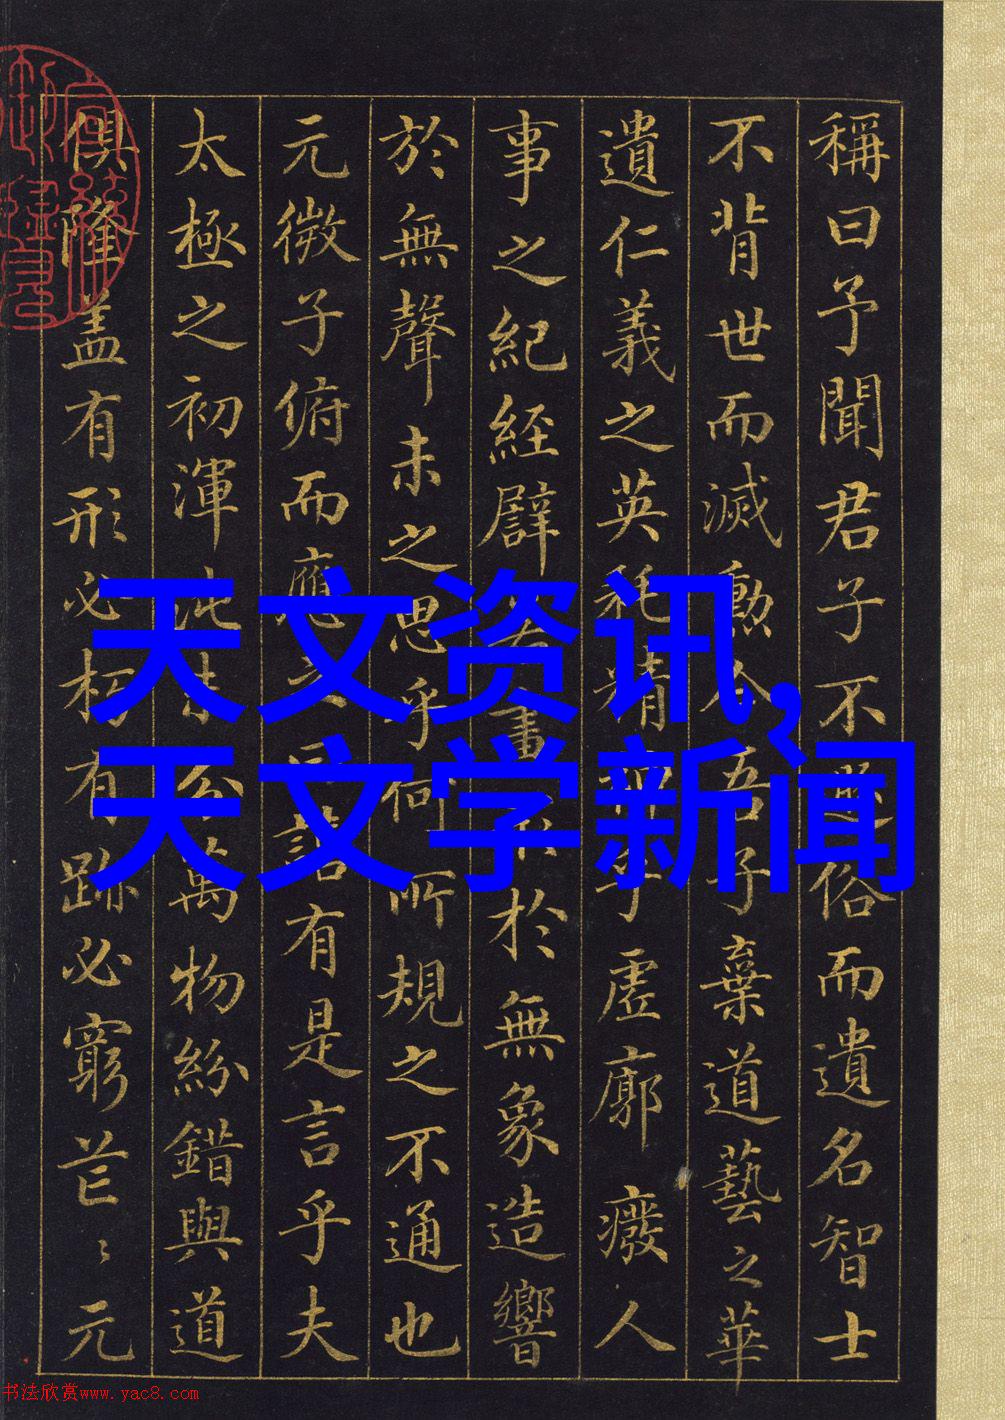 稱曰予聞君子不俗而遺名智士
不背世而滅勳今吾子棄道藝之華
遺仁義之英耗精乎虛廓廢人
事之紀經譬畫於無象造響
於無聲未之思乎何所規之不通也
元微子俯而應有是言乎夫
太極之初渾沌未分萬物紛錯與道
俱隆盖有形必朽有跡必窮芒々元
天文资讯,
天文学新闻
书法欣赏www.yac8.com